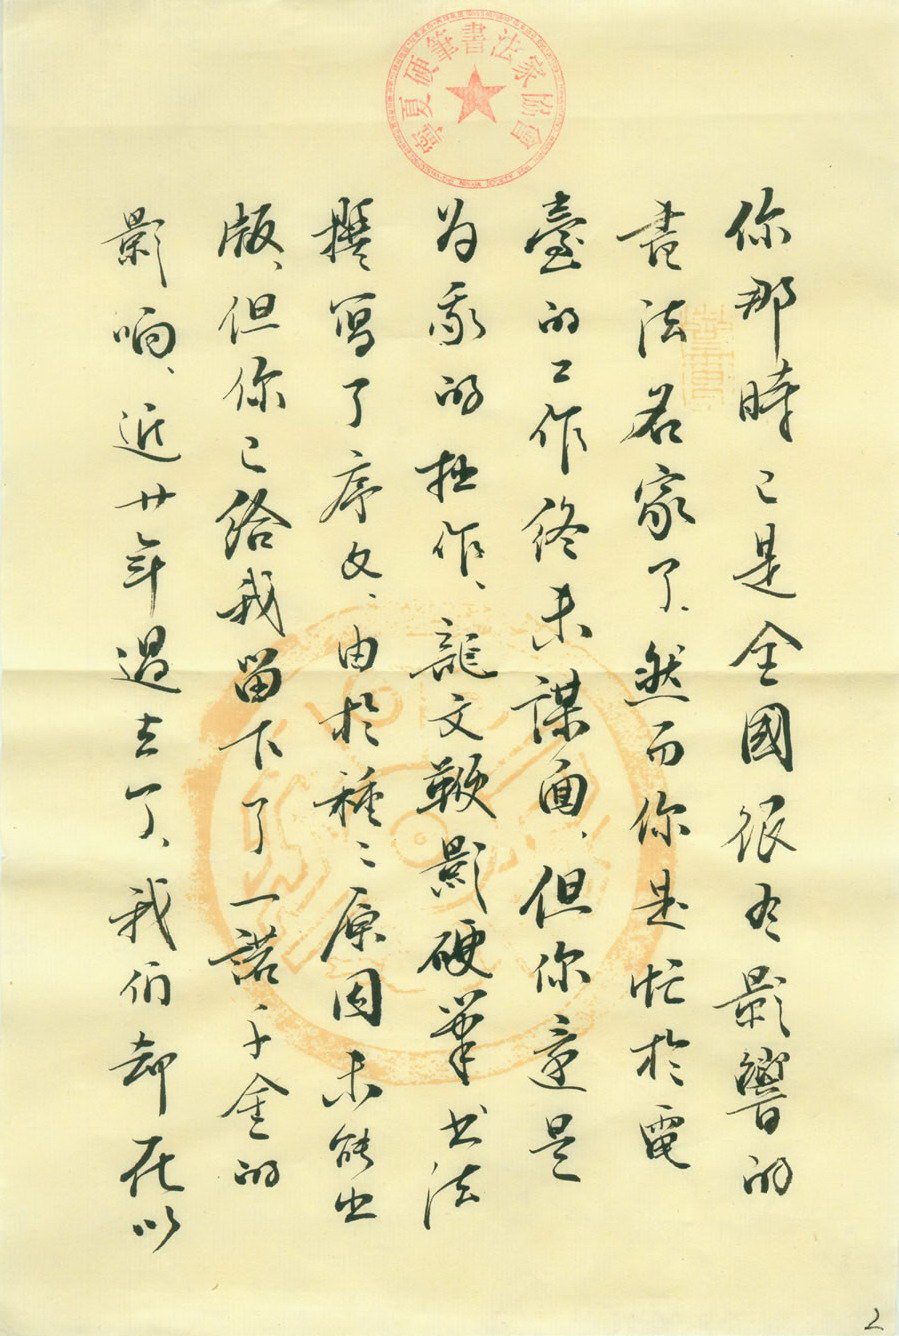 寧夏硬筆書法家協會
你那時已是全國很有影響的
書法名家了、然而你是忙於電
臺的工作終未謀面、但你還是
为我的拙作、龍文鞭影硬筆书法
撰寫了序文、由於種種原因未能出
版、但你已给我留下了一諾千金的
影响、近廿年過去了、我们却在以
2